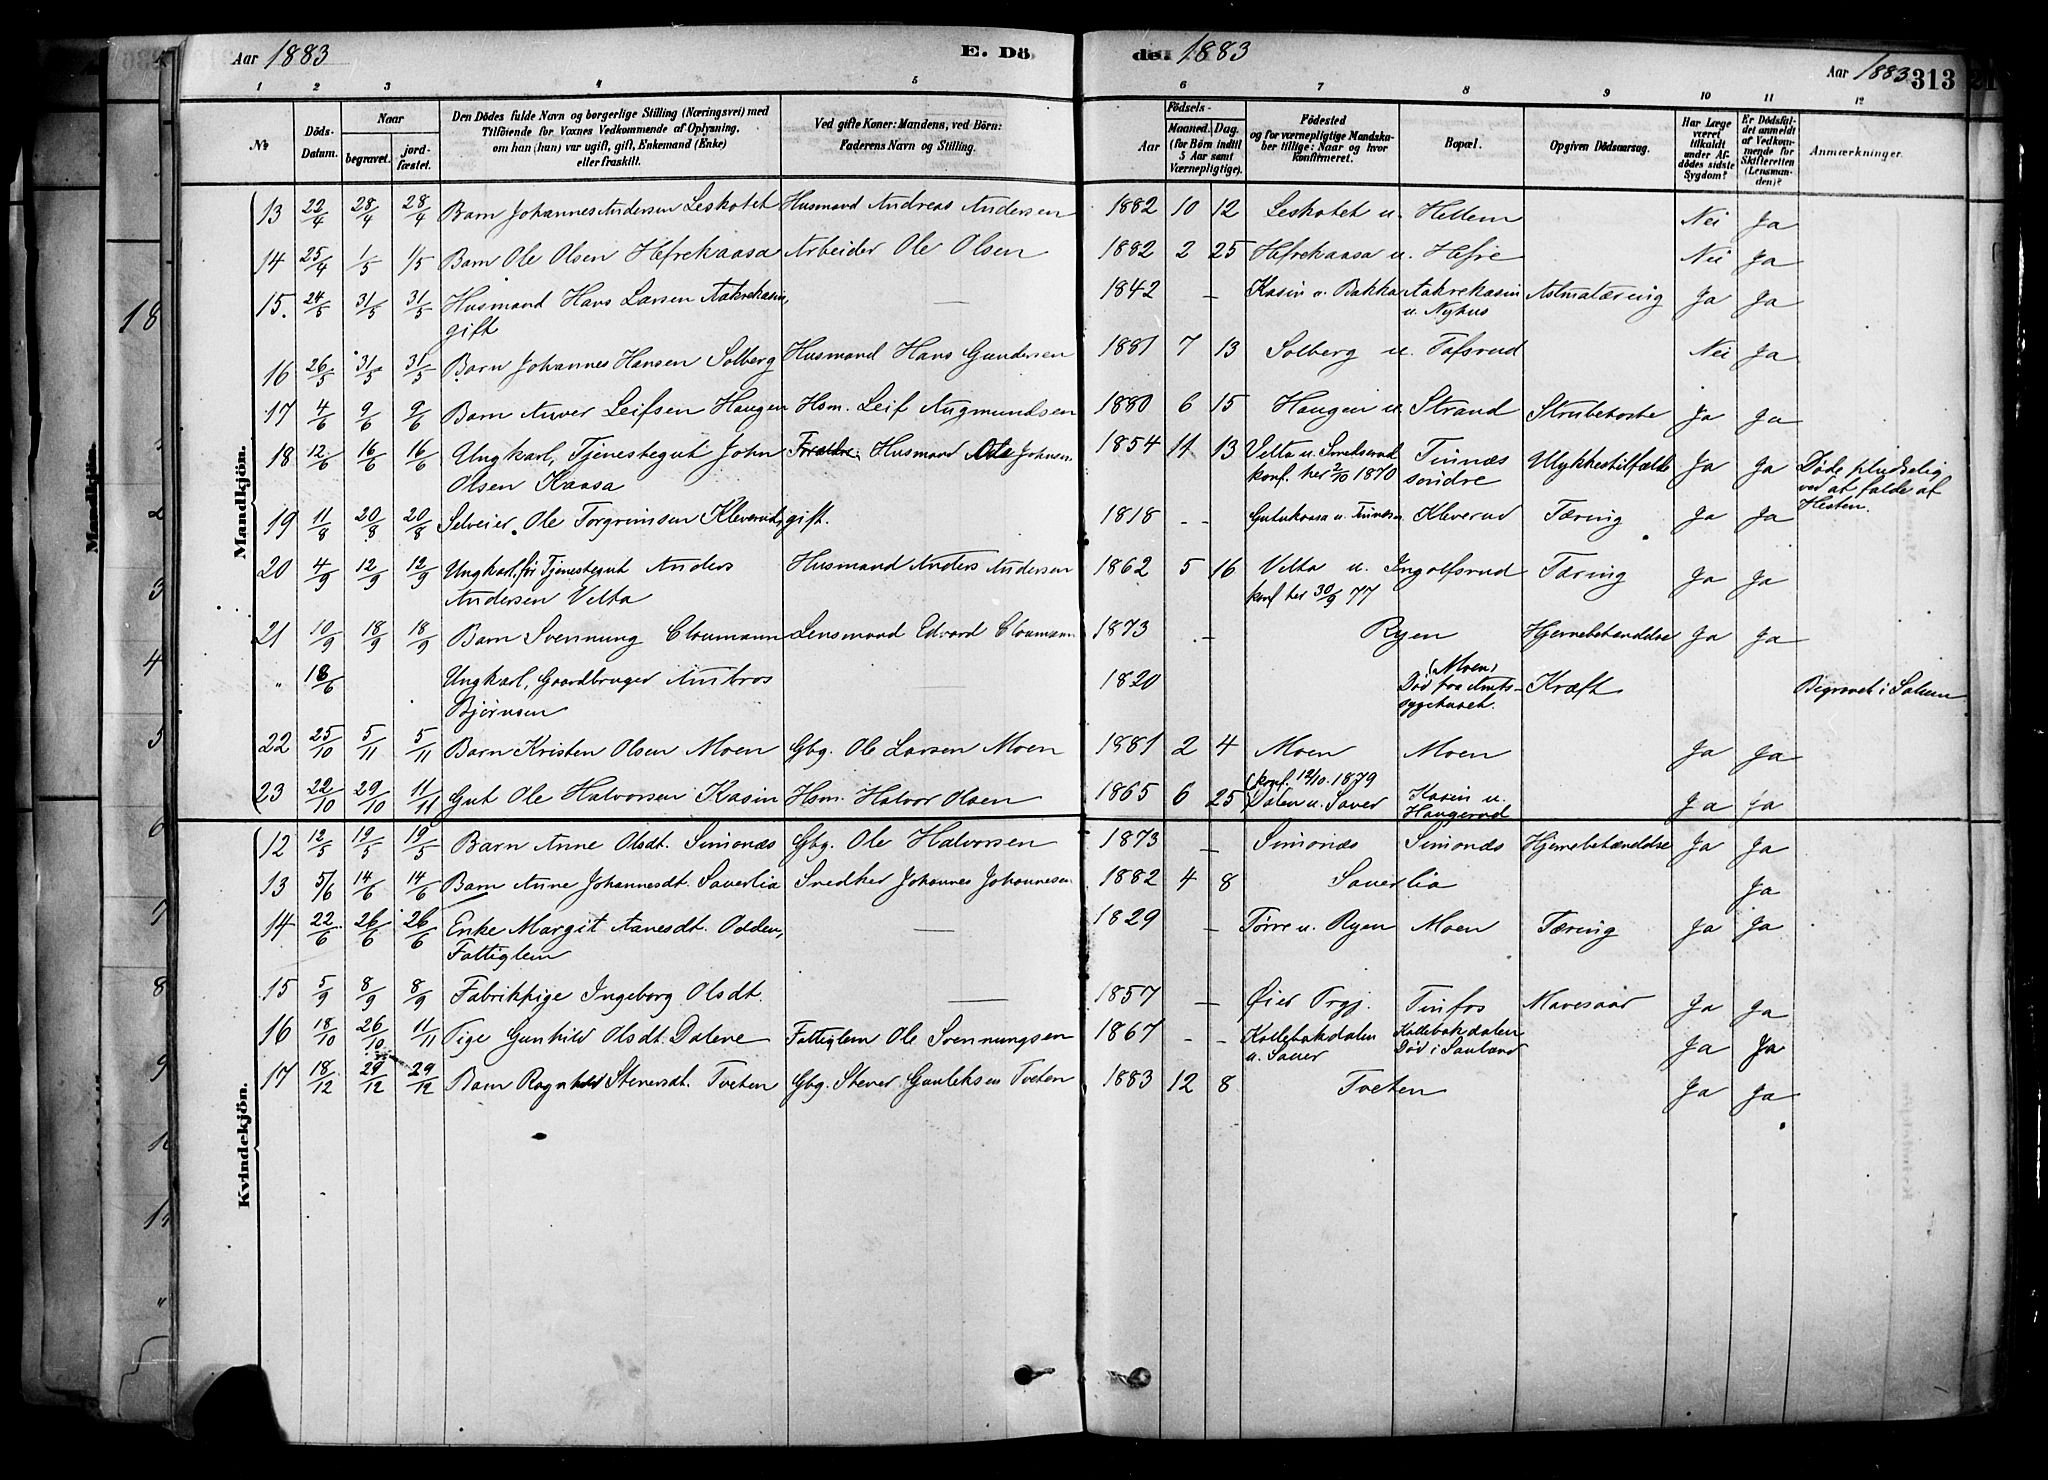 Aar 1883 E. Dö de. 1883 Aar 1883 313
1 2 3 4 5 6 7 8 9 10 11 12
№ Döds-Datum. Naar begravet. jordfæstet. Den Dödes fulde Navn og borgerlige Stilling (Næringsvei) med Tilföiende for Voxnes Vedkommende af Oplysning, om han (hun) var ugift, gift, Enkemand (Enke) eller fraskilt. Ved gifte Koner: Mandens, ved Börn: Faderens Navn og Stilling. Födsels- Aar Maaned. Dag. (for Börn indtil 5 Aar samt Værnepligtige). Födested og for værnepligtige Mandskaber tillige: Naar og hvor konfirmeret. Bopæl. Opgiven Dödsaarsag. Har Læge været tilkaldt under Afdödes sidste Sygdom? Er Dödsfaldet anmeldt af Vedkommende for Skifteretten (Lensmanden)? Anmærkninger.
Mandkjön.
13 22/4 28/4 28/4 Barn Johannes Andersen Leskotet Husmand Andreas Andersen 1882 10 12 Leskotet u. Hellem Nei Ja
14 25/4 1/5 1/5 Barn Ole Olsen Hefrekaasa Arbeider Ole Olsen 1882 2 25 Hefrekaasa u. Hefre Nei Ja
15. 24/5 31/5 31/5 Husmand Hans Larsen Aakrekasin, — 1842 - Kasin u. Bakka Aakrekasin Astmatæring Ja Ja
gift u. Nyhus
16 26/5 31/5 31/5 Barn Johannes Hansen Solberg Husmand Hans Gundersen 1881 7 13 Solberg u. Tafsrud Nei Ja
17 4/6 9/6 9/6 Barn Anver Leifsen Haugen Hsm. Leif Augmundsen 1880 6 15 Haugen u. Strand Strubehoste Ja Ja
18 12/6 16/6 16/6 Ungkarl, Tjenestegut John Forældre: Husmand Ole Johnsen 1854 11 13 Velta u. Tinnæs Ulykkestilfælde Ja Ja Døde pludselig
Olsen Kaasa konf. her 2/10 1870 søndre ved at falde af
Hesten.
19 11/8 20/8 20/8 Selveier Ole Torgrimsen Kleverud, gift. 1818 - - Kleverud Tæring Ja Ja
20 4/9 12/9 12/9 Ungkarl, før Tjenestegut Anders Husmand Anders Andersen 1862 5 16 Velta u. Ingolfsrud Tæring Ja Ja
Andersen Velta konf her 30/9 77
21 10/9 18/9 18/9 Barn Svennung Cloumann Lensmand Edvard Cloumann 1873 - Ryen Hjernebetændelse Ja Ja
" 18/6 Ungkarl, Gaardbruger Ambros — 1820 (Moen) Død paa Amts- Kræft Begravet i
Bjørnsen sygehuset.
22 25/10 5/11 5/11 Barn Kristen Olsen Moen Gbg. Ole Larsen Moen 1881 2 4 Moen Moen Ja Ja
23 22/10 29/10 11/11 Gut Ole Halvorsen Kasin Hsm. Halvor Olsen 1865 6 25 (konf. 12/10. 1879 Kasin u. Ja Ja
Dalen u. Sauer Haugerud
Kvindekjön.
12 12/5 19/5 19/5 Barn Anne Olsdt. Simonæs Gbg. Ole Halvorsen 1873 — Simonæs Simonæs Hjernebetændelse Ja Ja
13 5/6 14/6 14/6 Barn Anne Johannesdt. Sauerlia Snedker Johannes Johannesen 1882 4 8 Sauerlia Ja
14 22/6 26/6 26/6 Enke Margit Aanesdt. Odden, — 1829 — Tørre u. Ryen Moen Tæring Ja Ja
Fattiglem
15 5/9 8/9 8/9 Fabrikpige Ingeborg Olsdt. — 1857 — Øier Prgj. Tinfos Mavesaar Ja Ja
16 18/10 26/10 11/11 Pige Gunhild Olsdt. Dalene Fattiglem Ole Svennungsen 1867 - - Kollebakdalen Kollebakdalen Ja Ja
u. Sauer Død i Sauland
17 18/12 29/12 29/12 Barn Ragnhild Steversdt. Tveten Gbg. Stever Gunleksen Tveten 1883 12 8 Tveten Ja Ja
Mandkjön.
18